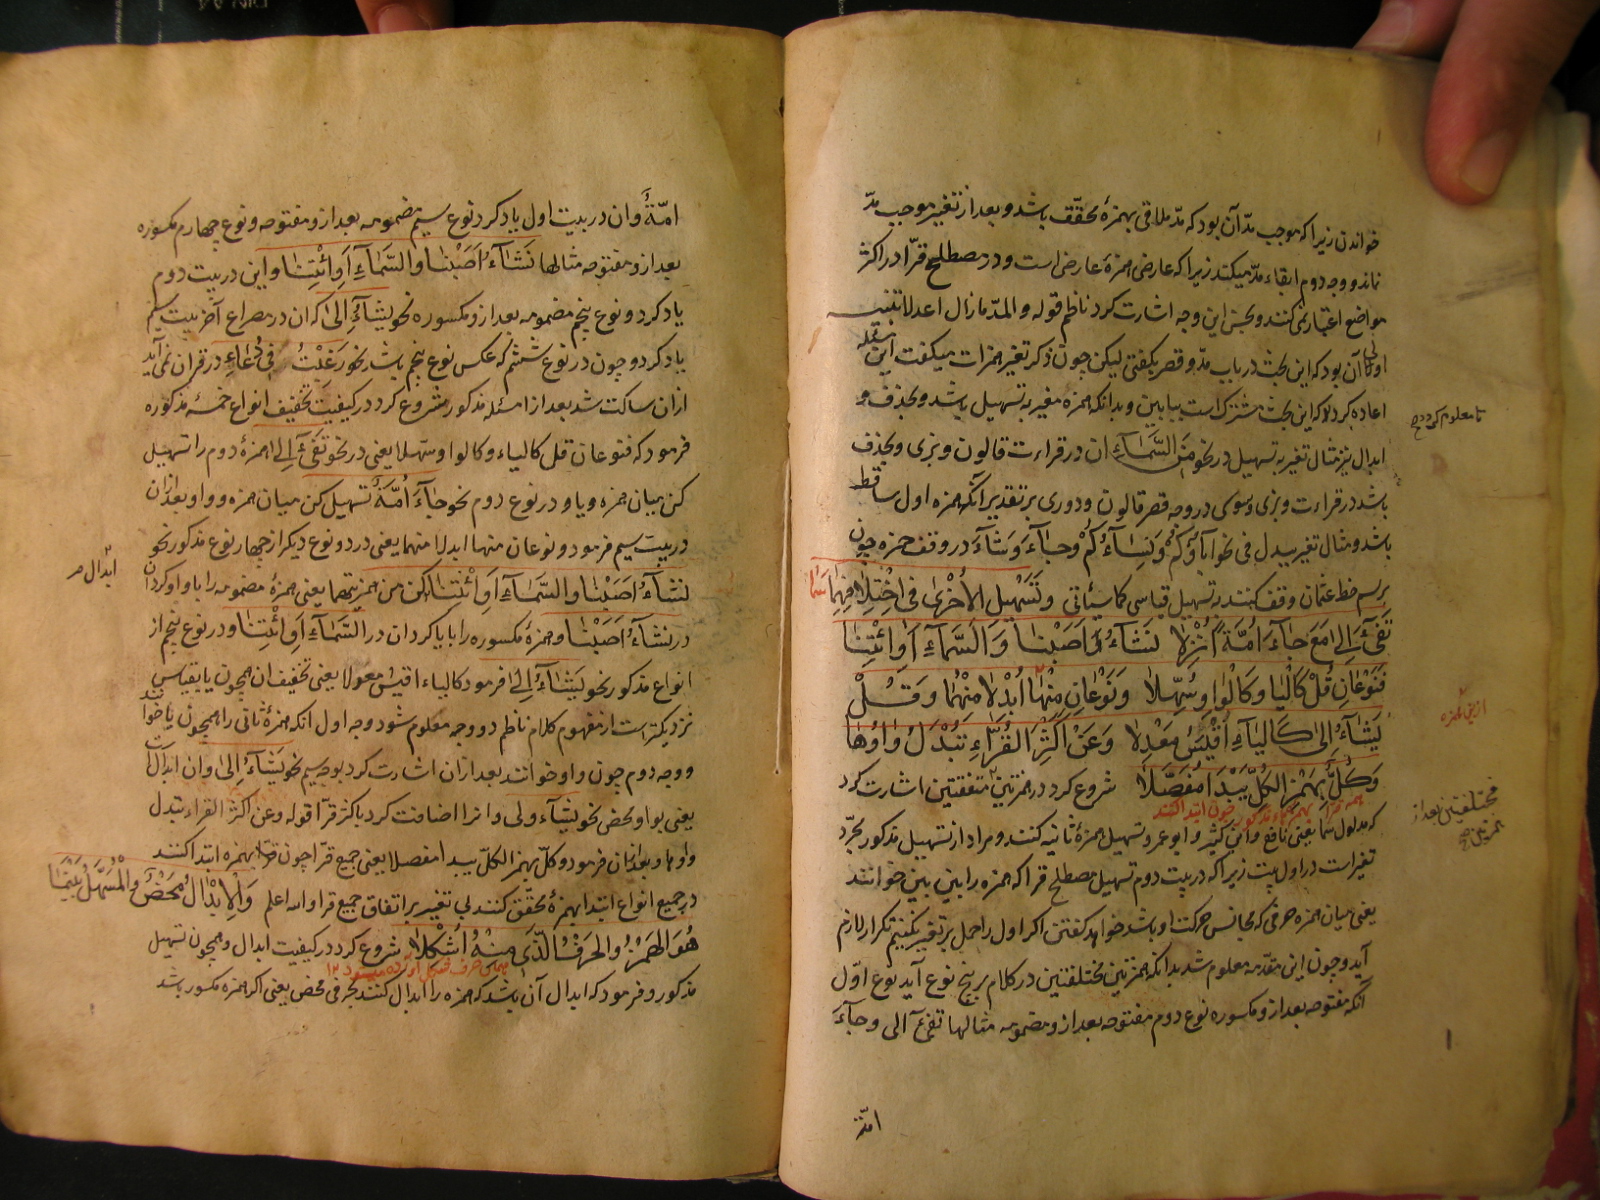 خواندن زیرا که موجب مدّ آن بود که مدّ ملاقی بهمزهٔ محقّق باشد و بعد از تغییر موجب مدّ
نماند و وجه دوم ابقاء مدّ میکند زیرا که عارضی همزهٔ عارضی است و در مصطلح قرّا در اکثر
مواضع اعتبار نمی کنند و بحسن این وجه اشارت کرد ناظم قوله و المدّ مازال اعدلا تنبیه
اولی آن بود که این بحث در باب مدّ و قصر بگفتی لیکن چون ذکر تغیر همزات میکفت این مسئله
اعاده کرد که این بحث مشترک است ببابین و بدانکه همزه مغیر به تسهیل باشد و بحذف و
ابدال نیز مثال تغیر به تسهیل در نحو مِنَ السَّمَآءِ ان در قراءت قالون و بزی و بحذف
باشد در قراءت و بزی و سوی در وجه قصر قالون و دوری بر تقدیر آنکه همزه اول ساقط
باشد و مثال تغییر ببدل فی نحو ابآؤکم وَنِسَآءُكُمْ وجَآءَ وَشَآءَ در وقف حمزه چون
برسم خط عثمان وقف کنند به تسهیل قیاسی کما سیأتی وَتَسْهِيلُ الأُخْرَى فِي اخْتِلَافِهِمَا سَمَا
تَفِيءَ إِلى مَعَ جَآءَ أُمَّةً انْزِلَا نَشَآءُ أَصَبْنَا وَالسَّمَآءِ أَوِ ائْتِنَا
فَنَوْعَانِ قُلْ كَالْيَا وَكَالْوَاوِ سُهِّلَا وَنَوْعَانِ مِنْهَا أُبْدِلَا مِنْهُمَا وَقُلْ
يَشَآءُ إِلَى كَالْيَآءِ أَقْيَسُ مَعْدِلَا وَعَنْ أَكْثَرِ القُرَّاءِ تُبْدَلُ وَاوُهَا
وَكُلٌّ بِهَمْزِ الكُلِّ يَبْدَا مُفَصِّلَا شروع کرد در همزتین متفقتین اشارت کرد
که مدلول سما یعنی نافع و ابن کثیر و ابو عمرو تسهیل همزهٔ ثانیه کنند و مراد از تسهیل مذکور مجرّد
تغیر است در اول بیت زیرا که در بیت دوم تسهیل مصطلح قرا که همزه را بین بین خوانند
یعنی میان همزه و حرفی که مجانس حرکت او باشد خواهد کفتن اکر اول را حمل بر تغییر نکنیم تکرار لازم
آید و چون این مقدمه معلوم شد بدانکه همزتین مختلفتین در کلام بر پنج نوع آید نوع اوّل
آنکه مفتوحه بعد از و مکسوره نوع دوم مفتوحه بعد از و مضمومه مثالها تفیءَ الی و جآءَ
امّة
تا معلوم کردد
مختلفتین بعد از
امّةً وان در بیت اول یاد کرد نوع سیم مضمومه بعد از و مفتوحه و نوع چهارم مکسوره
بعد از و مفتوحه مثالها نَشَآءُ اَصَبْنَا وَالسَّمَآءِ اَوِ ائْتِنَا و این در بیت دوم
یاد کرد و نوع پنجم مضمومه بعد از و مکسوره نحو یَشَآءُ اِلیٰ که ان در مصراع آخر بیت سیم
یاد کرد و چون در نوع ششم که عکس نوع پنجم باشد نحو رَغِبْتُ فی دُعَاءِ در قران نمی آید
ازان ساکت شد بعد از امثله مذکور شروع کرد در کیفیت تخفیف انواع خمسهٔ مذکوره
فرمود که فنوعان قل کالیاء و کالواو سهلا یعنی در نحو تَفِیءَ اِلی همزهٔ دوم را تسهیل
کن میان همزه و یا و در نوع دوم نحو جَآءَ اُمَّةً تسهیل کن میان همزه و واو بعد ازان
در بیت سیم فرمود و نوعان منها ابدلا منهما یعنی در دو نوع دیکر از چهار نوع مذکور نحو
نَشَآءُ اَصَبْنَا وَالسَّمَآءِ اَوِ ائْتِنَا کن من همزتهما یعنی همزهٔ مضمومه را با واو کردان
در نَشَآءُ اَصَبْنَا و همزهٔ مکسوره را با یا کردان در السَّمَآءِ اَوِ ائْتِنَا و در نوع پنجم از
انواع مذکور نحو یَشَآءُ اِلی فرمود کالیاء اقیس معدلا یعنی تخفیف ان همچون یا بقیاس
نزدیکتر است از مفهوم کلام ناظم دو وجه معلوم شود وجه اول انکه همزهٔ ثانی را همچون یا خوانند
و وجه دوم چون واو خوانند بعد ازان اشارت کرد بوجه سیم نحو یَشَآءُ اِلیٰ وان ابدال است
یعنی بواو محض نحو یشآء ولی وانرا اضافت کرد باکثر قرّا قوله وعن اکثر القراء تبدل
واوها و بعد ازان فرمود وکلّ بهمز الکلّ یبدا مفصلا یعنی جمیع قرّا چون بهمزه ابتدا کنند
در جمیع انواع ابتدا بهمزهٔ محقق کنند بی تغییر باتفاق جمیع قرا والله اعلم وَالإِبْدَالُ مَحْضٌ وَالْمُسَهَّلُ بَيْنَمَا
هُوَ الهَمْزُ وَالحَرْفُ الَّذِي مِنْهُ أُشْكِلَا شروع کرد در کیفیت ابدال و همچون تسهیل
مذکور و فرمود که ابدال آن باشد که همزه را ابدال کنند بحرفی محض یعنی اکر همزه مکسور باشد
ابدال